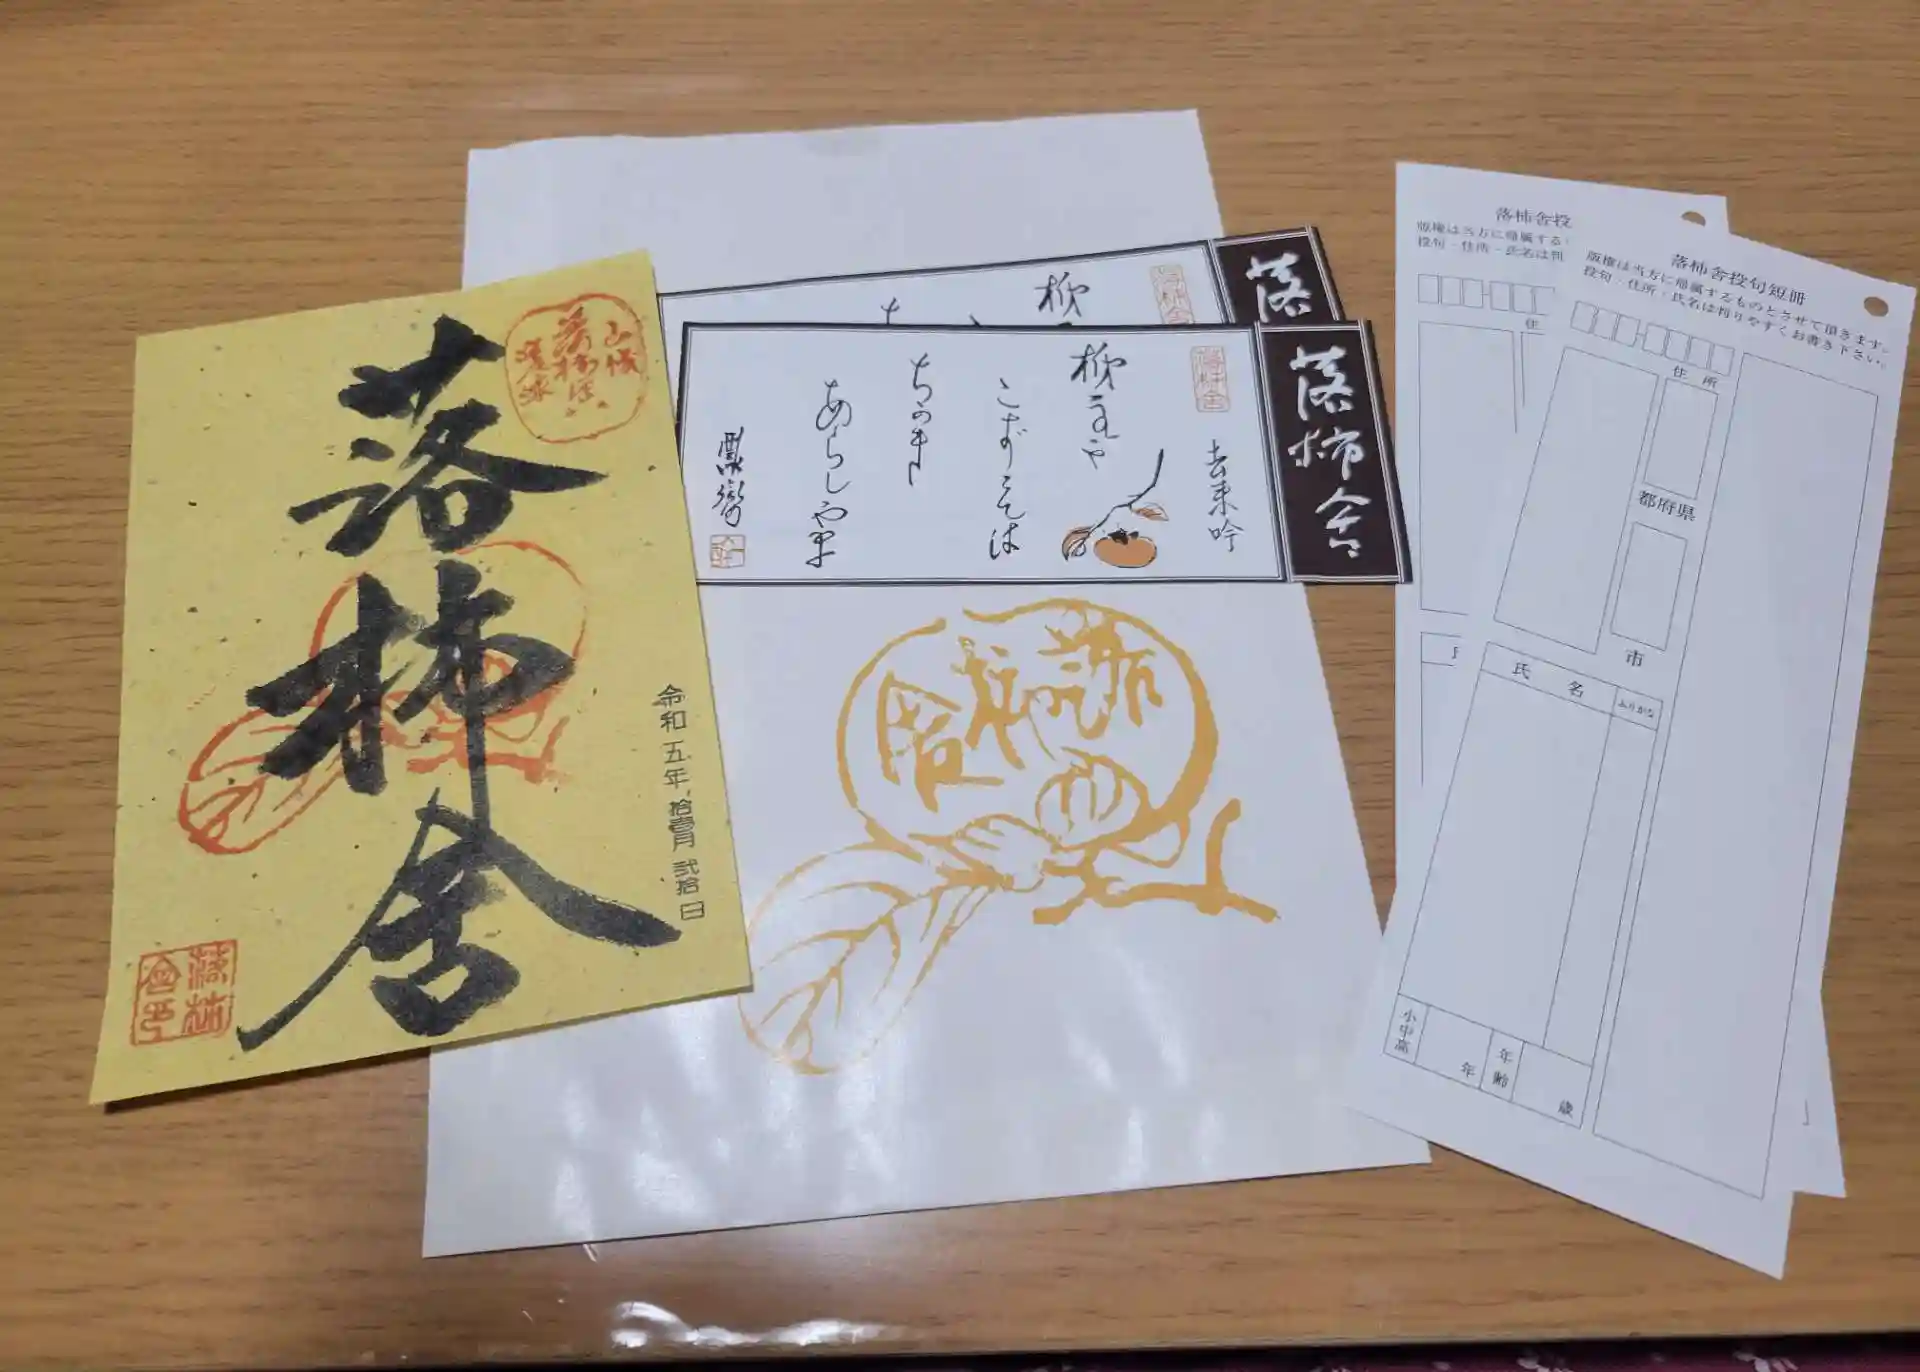 落柿舎
令和五年拾壹月弐拾日
落柿舎印
落
柿
落柿舎
落柿舎
去来吟
こずゑは
ちかき
あらしやま
落柿舎投
版権は当方に帰属する
投句・住所・氏名は判
住
落柿舎投句短冊
版権は当方に帰属するものとさせて頂きます。
投句・住所・氏名は判りやすくお書き下さい。
住所
都府県
市
氏名
ふりがな
小中高
年
年齢
歳